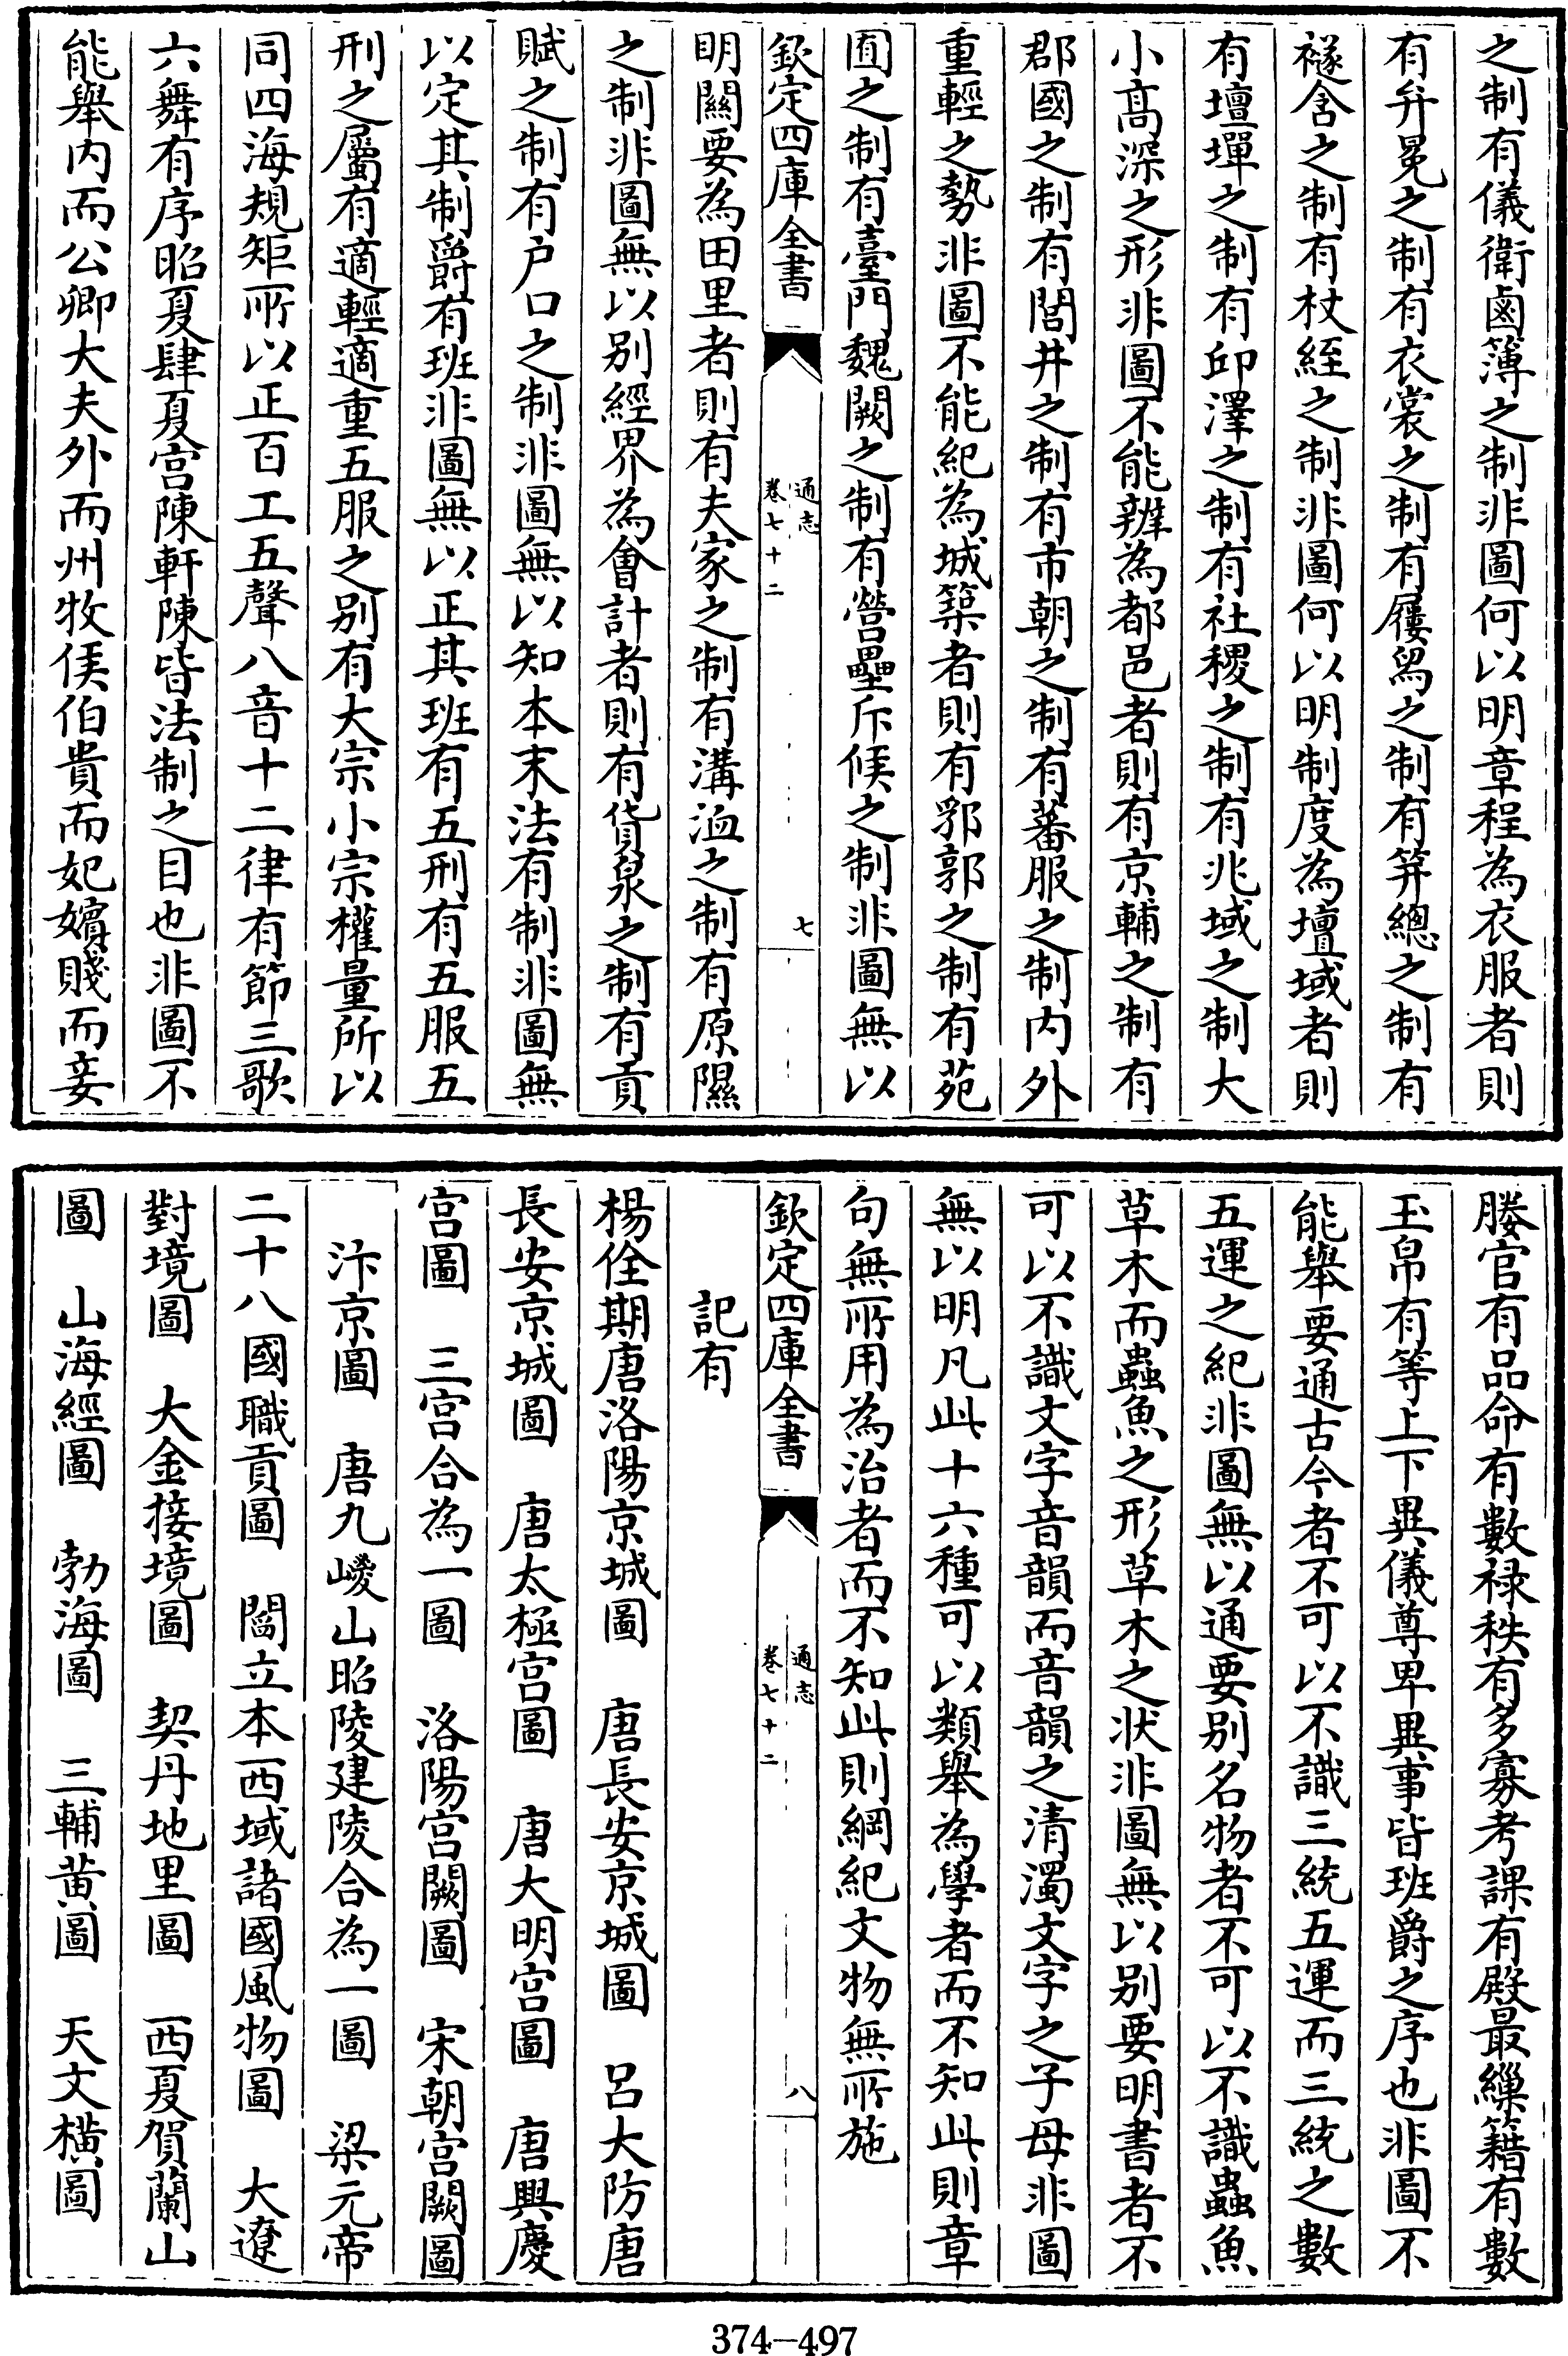 之制有儀衛鹵簿之制非圖何以明章程為衣服者則
有弁冕之制有衣裳之制有屨舄之制有笄總之制有
襚含之制有杖絰之制非圖何以明制度為壇域者則
有壇墠之制有邱澤之制有社稷之制有兆域之制大
小高深之形非圖不能辨為都邑者則有京輔之制有
郡國之制有閭井之制有市朝之制有蕃服之制内外
重輕之勢非圖不能紀為城築者則有郛郭之制有苑
囿之制有臺門魏闕之制有營壘斥候之制非圖無以
欽定四庫全書
通志
卷七十二
七
明關要為田里者則有夫家之制有溝洫之制有原隰
之制非圖無以别經界為會計者則有貨泉之制有貢
賦之制有户口之制非圖無以知本末法有制非圖無
以定其制爵有班非圖無以正其班有五刑有五服五
刑之屬有適輕適重五服之别有大宗小宗權量所以
同四海規矩所以正百工五聲八音十二律有節三歌
六舞有序昭夏肆夏宫陳軒陳皆法制之目也非圖不
能舉内而公卿大夫外而州牧侯伯貴而妃嬪賤而妾
媵官有品命有數禄秩有多寡考課有殿最繅籍有數
玉帛有等上下異儀尊卑異事皆班爵之序也非圖不
能舉要通古今者不可以不識三統五運而三統之數
五運之紀非圖無以通要别名物者不可以不識蟲魚
草木而蟲魚之形草木之状非圖無以别要明書者不
可以不識文字音韻而音韻之清濁文字之子母非圖
無以明凡此十六種可以類舉為學者而不知此則章
句無所用為治者而不知此則綱紀文物無所施
欽定四庫全書
通志
卷七十二
八
記有
楊佺期唐洛陽京城圖　唐長安京城圖　吕大防唐
長安京城圖　唐太極宫圖　唐大明宫圖　唐興慶
宫圖　三宫合為一圖　洛陽宫闕圖　宋朝宫闕圖
汴京圖　唐九嵕山昭陵建陵合為一圖　梁元帝
二十八國職貢圖　閻立本西域諸國風物圖　大遼
對境圖　大金接境圖　契丹地里圖　西夏賀蘭山
圖　山海經圖　勃海圖　三輔黄圖　天文橫圖
374-497